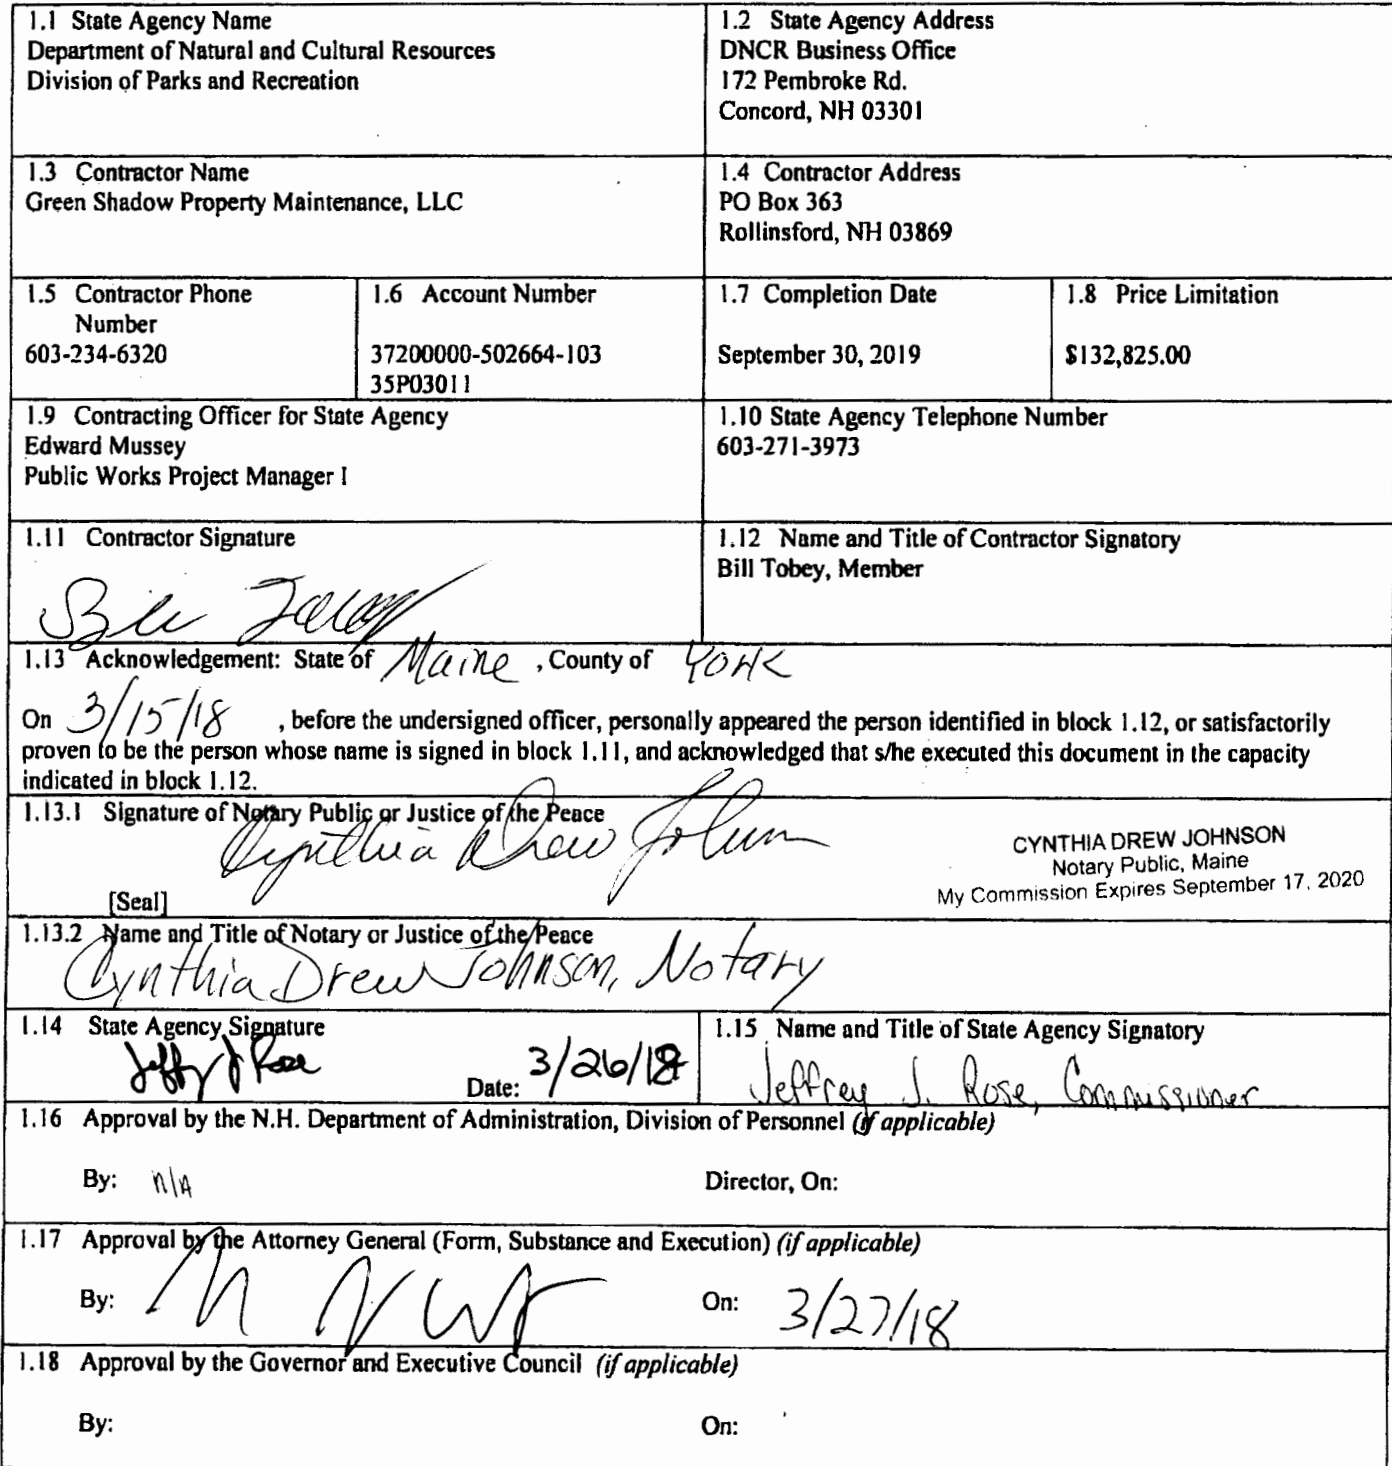 1.1 State Agency Name
Department of Natural and Cultural Resources
Division of Parks and Recreation
1.2 State Agency Address
DNCR Business Office
172 Pembroke Rd.
Concord, NH 03301
1.3 Contractor Name
Green Shadow Property Maintenance, LLC
1.4 Contractor Address
PO Box 363
Rollinsford, NH 03869
1.5 Contractor Phone
Number
603-234-6320
1.6 Account Number
37200000-502664-103
35P03011
1.7 Completion Date
September 30, 2019
1.8 Price Limitation
$132,825.00
1.9 Contracting Officer for State Agency
Edward Mussey
Public Works Project Manager I
1.10 State Agency Telephone Number
603-271-3973
1.11 Contractor Signature
Bill Tobey
1.12 Name and Title of Contractor Signatory
Bill Tobey, Member
1.13 Acknowledgement: State of Maine, County of York
On 3/15/18, before the undersigned officer, personally appeared the person identified in block 1.12, or satisfactorily
proven to be the person whose name is signed in block 1.11, and acknowledged that s/he executed this document in the capacity
indicated in block 1.12.
1.13.1 Signature of Notary Public or Justice of the Peace
Cynthia Drew Johnson
[Seal]
CYNTHIA DREW JOHNSON
Notary Public, Maine
My Commission Expires September 17, 2020
1.13.2 Name and Title of Notary or Justice of the Peace
Cynthia Drew Johnson, Notary
1.14 State Agency Signature
Jeffrey J Rose
Date: 3/26/18
1.15 Name and Title of State Agency Signatory
Jeffrey J. Rose, Commissioner
1.16 Approval by the N.H. Department of Administration, Division of Personnel (if applicable)
By: n/A
Director, On:
1.17 Approval by the Attorney General (Form, Substance and Execution) (if applicable)
By:
On: 3/27/18
1.18 Approval by the Governor and Executive Council (if applicable)
By:
On: